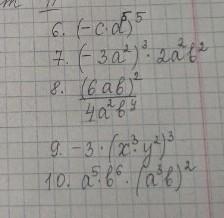 6. (-c·a⁵)⁵
7. (-3a²)³·2a²b²
8. (6ab)²
4a²b⁴
9. -3·(x³·y²)³
10. a⁵·b⁶·(a³b)²